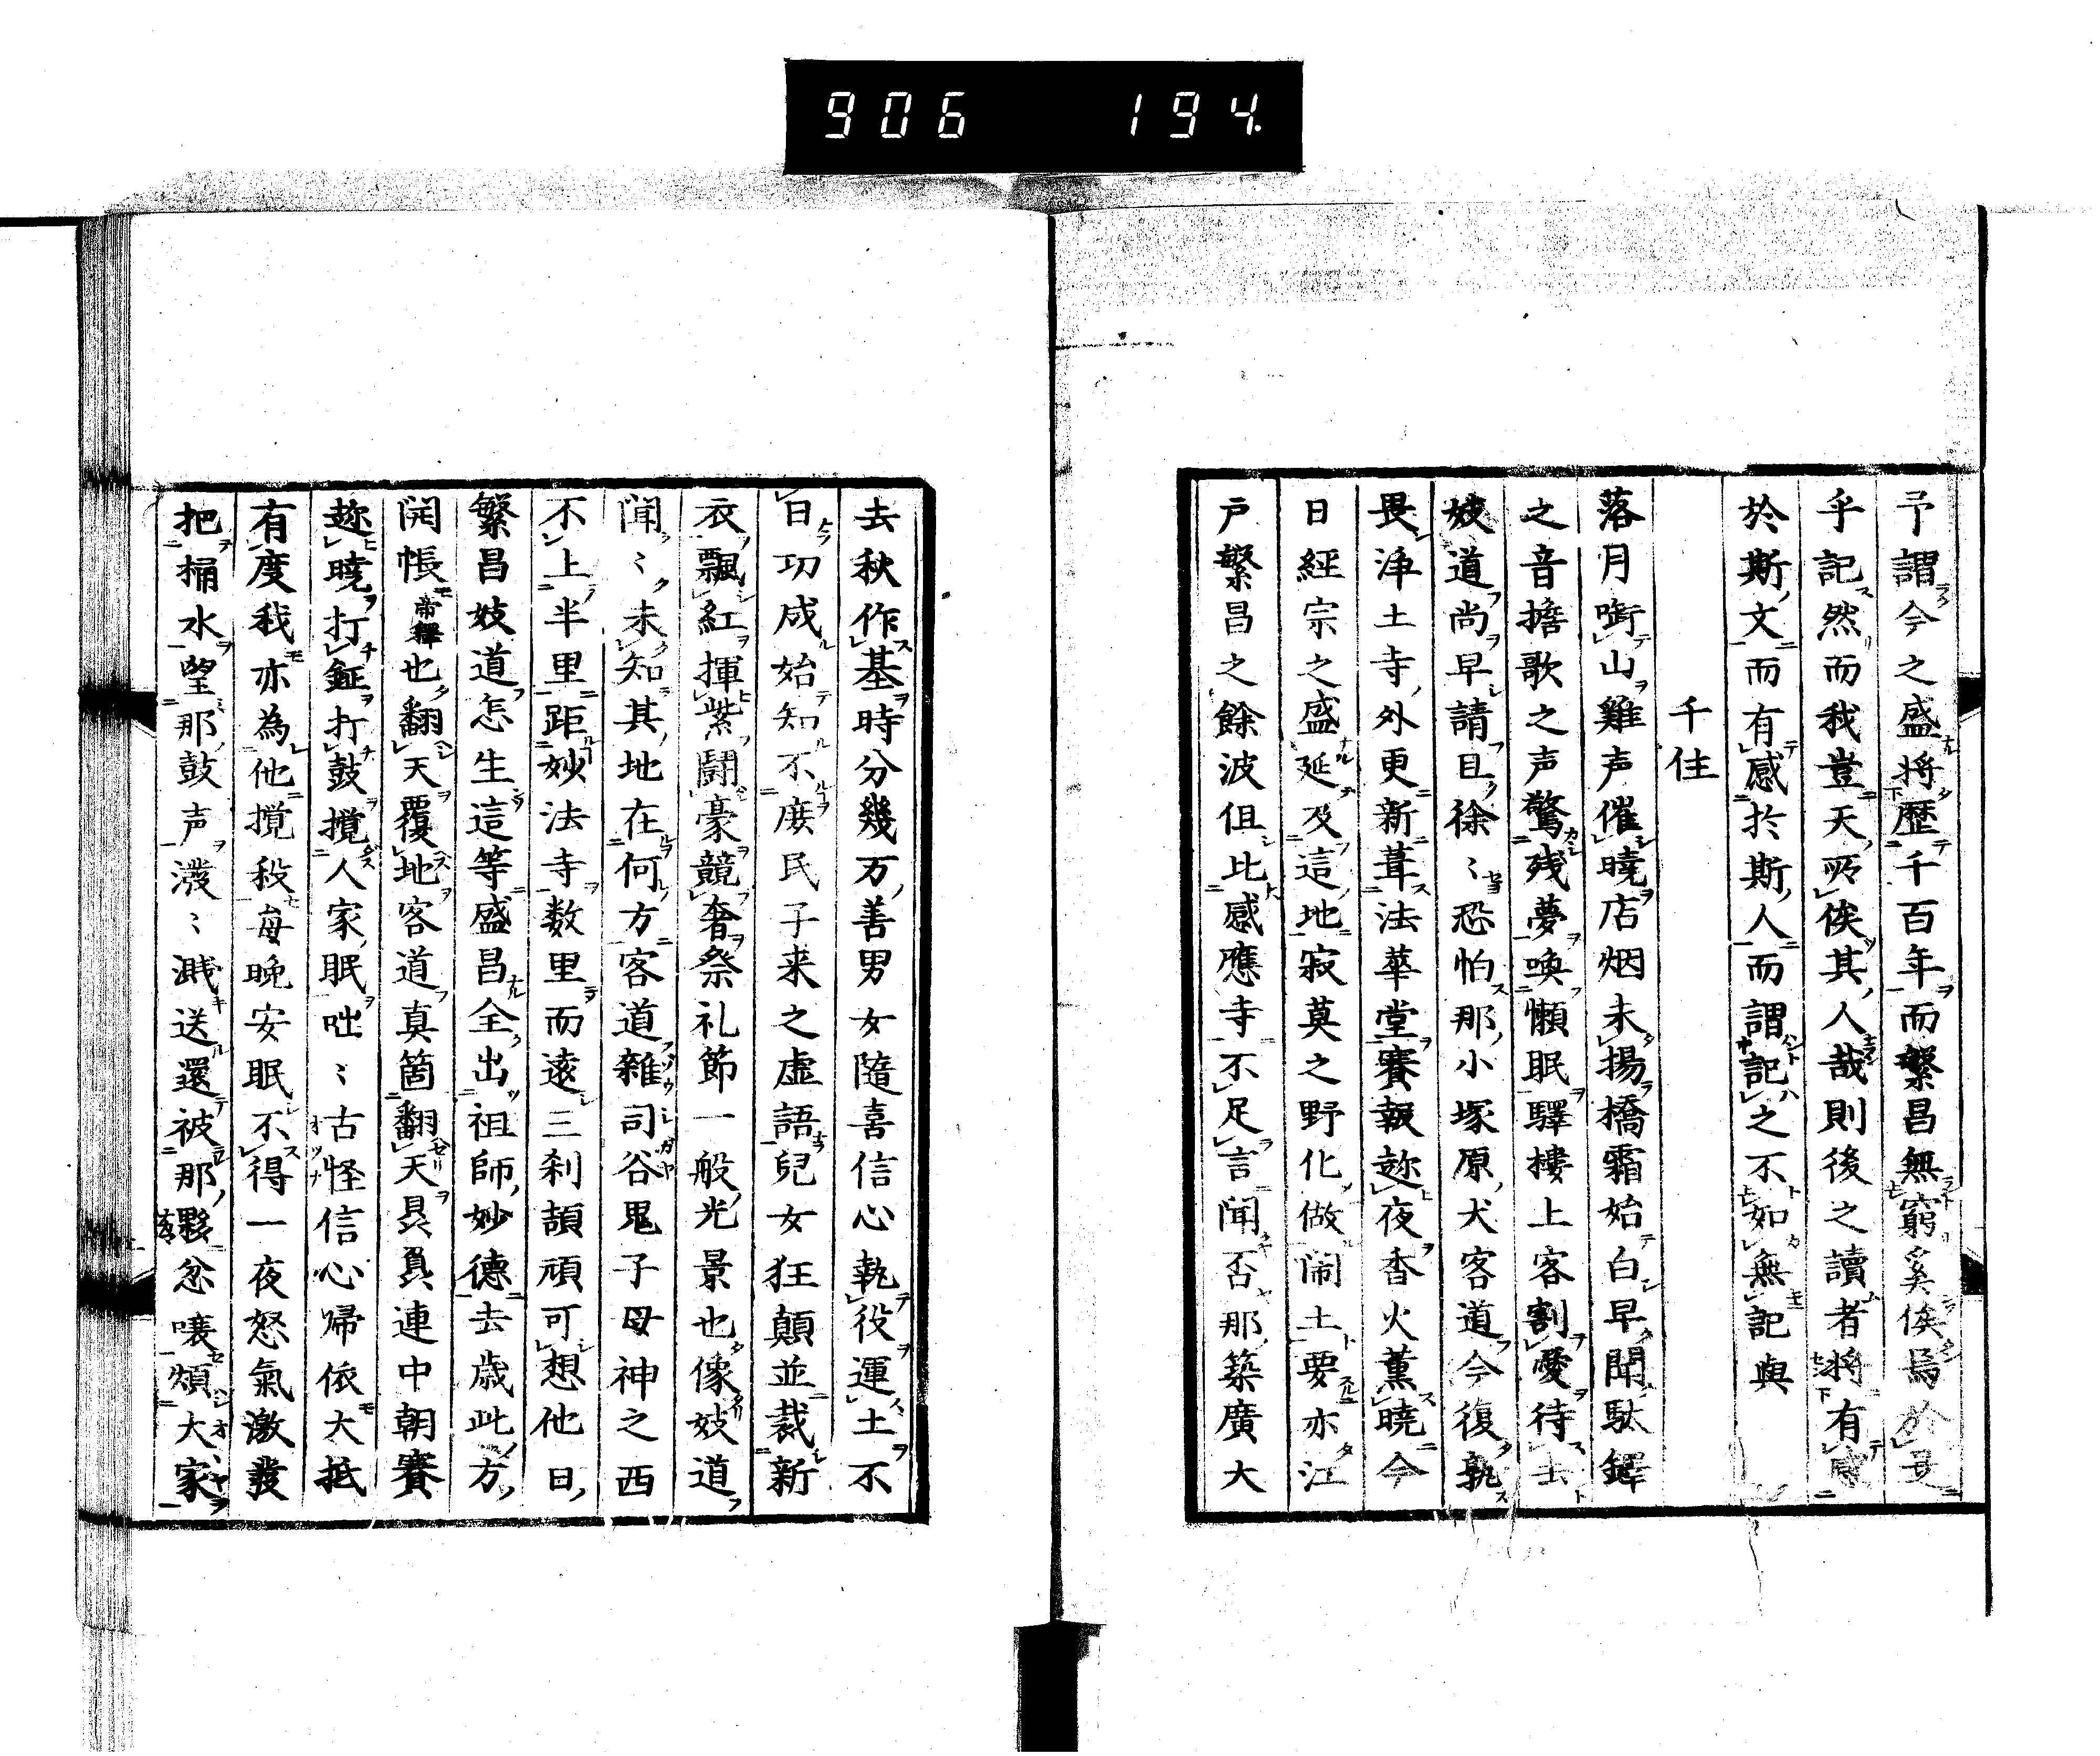 906 194
予謂今之盛将歷千百年而繁昌無窮奚俟焉於是
乎記然而我豈天所俟其人哉則後之讀者将有感
於斯文而有感於斯人而謂記之不如無記與
千住
落月啣山雞声催曉店烟未揚橋霜始白早聞駄鐸
之音擔歌之声驚残夢喚懶眠驛樓上客割愛待去
妓道尚早請且徐〻恐怕那小塚原犬客道今復孰
畏浄土寺外更新葺法華堂賽報趂夜香火薫曉今
日經宗之盛延及這地寂莫之野化做閙土要亦江
戸繁昌之餘波但比感應寺不足言聞否那築廣大
去秋作基時分幾万善男女隨喜信心執役運土不
日功成始知不庶民子来之虚語兒女狂顛並裁新
衣飄紅揮紫鬪豪競奢祭礼節一般光景也像妓道
聞〻未知其地在何方客道雜司谷鬼子母神之西
不上半里距妙法寺数里而遠三刹頡頑可想他日
繁昌妓道怎生這等盛昌全出祖師妙德去歳此方
開帳帝釋也翻天覆地客道真箇翻天昃員連中朝賽
趂曉打鉦打鼓攪人家眠咄〻古怪信心帰依大抵
有度我亦為他攪殺每晚安眠不得一夜怒氣激發
把桶水望那鼓声潑〻濺送還被那夥忿嚷煩大家